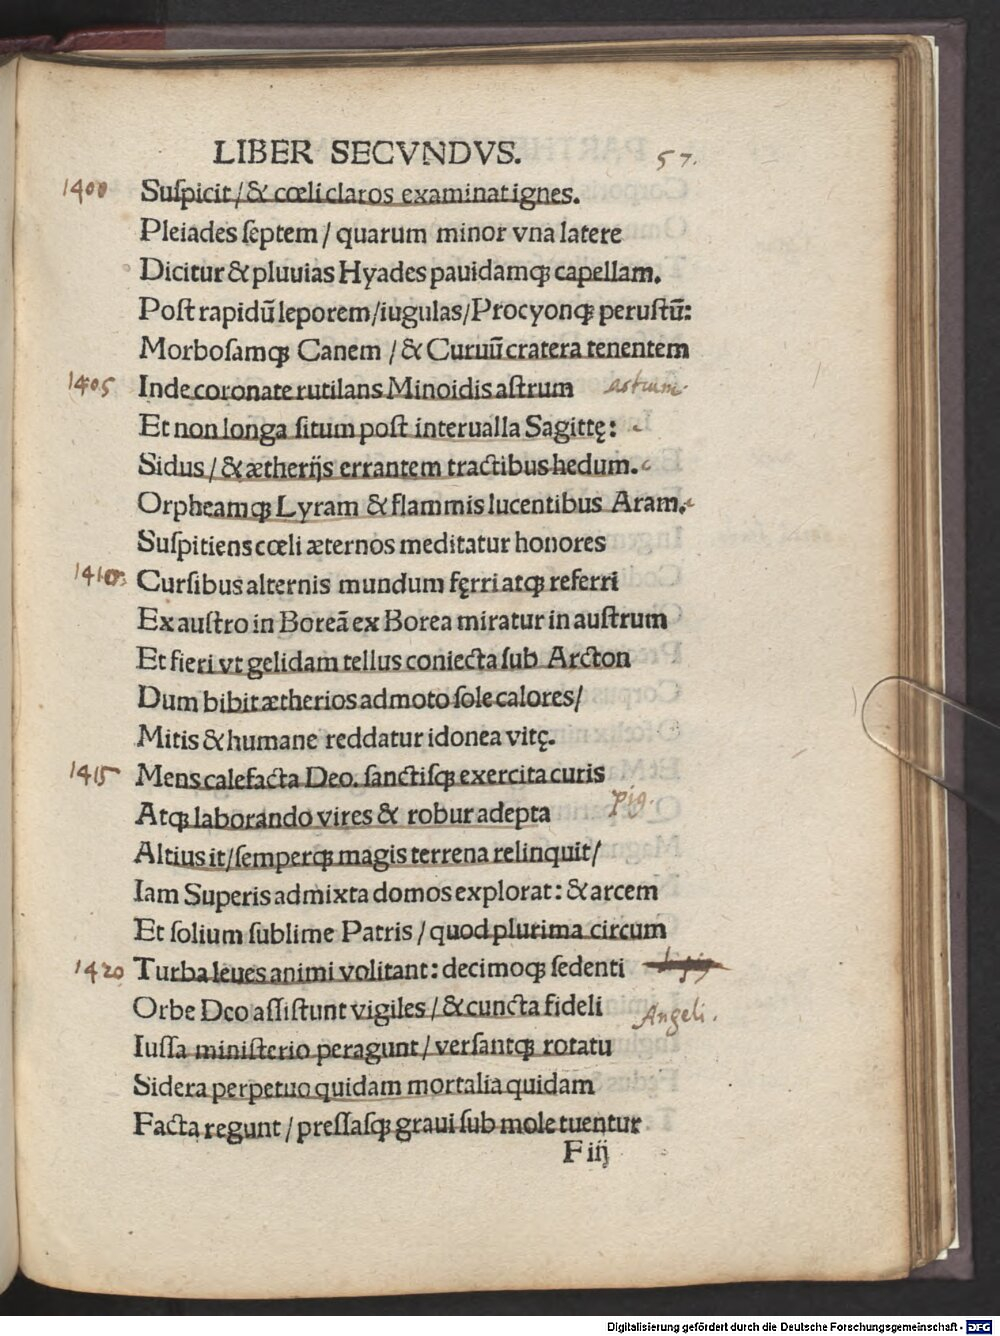 LIBER SECVNDVS. 57.
1400 Suſpicit / & cœli claros examinat ignes.
Pleiades ſeptem / quarum minor vna latere
Dicitur & pluuias Hyades pauidamqꝫ capellam.
Poſt rapidū leporem / iugulas / Procyonqꝫ peruſtū:
Morboſamqꝫ Canem / & Curuū cratera tenentem
1405 Inde coronate rutilans Minoidis aſtrum astrum
Et non longa ſitum poſt interualla Sagittę:
Sidus / & ætherijs errantem tractibus hedum.
Orpheamqꝫ Lyram & flammis lucentibus Aram.
Suſpitiens cœli æternos meditatur honores
1410 Curſibus alternis mundum fęrri atqꝫ referri
Ex auſtro in Boreā ex Borea miratur in auſtrum
Et fieri vt gelidam tellus coniecta ſub Arcton
Dum bibit ætherios admoto ſole calores /
Mitis & humane reddatur idonea vitę.
1415 Mens calefacta Deo. ſanctiſqꝫ exercita curis
Atqꝫ laborando vires & robur adepta pig.
Altius it / ſemperqꝫ magis terrena relinquit /
Iam Superis admixta domos explorat: & arcem
Et ſolium ſublime Patris / quod plurima circum
1420 Turba leues animi volitant: decimoqꝫ ſedenti
Orbe Deo aſſiſtunt vigiles / & cuncta fideli Angeli.
Iuſſa miniſterio peragunt / verſantqꝫ rotatu
Sidera perpetuo quidam mortalia quidam
Facta regunt / preſſaſqꝫ graui ſub mole tuentur
F iij
Digitalisierung gefördert durch die Deutsche Forschungsgemeinschaft - DFG